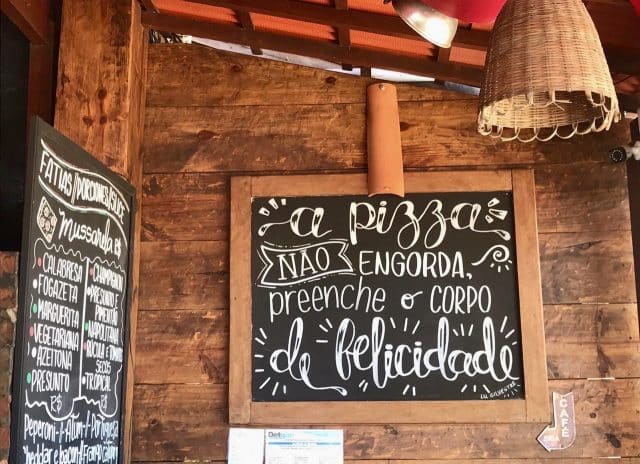 FATIAS/PORCIONES/SLICE
Mussarela R$
CALABRESA
FOGAZETA
MARGUERITA
VEGETARIANA
AZEITONA
PRESUNTO
R$
CHAMPIGNON
PRESUNTO E
PIMENTÃO
NAPOLITANA
RÚCULA E TOMATE
SECOS
TROPICAL
R$
Peperoni + Atum + Portuguesa
Cheddar e bacon + Frango
a pizza
NÃO ENGORDA,
preenche o CORPO
de felicidade
LU SILVESTRE
CAFÉ